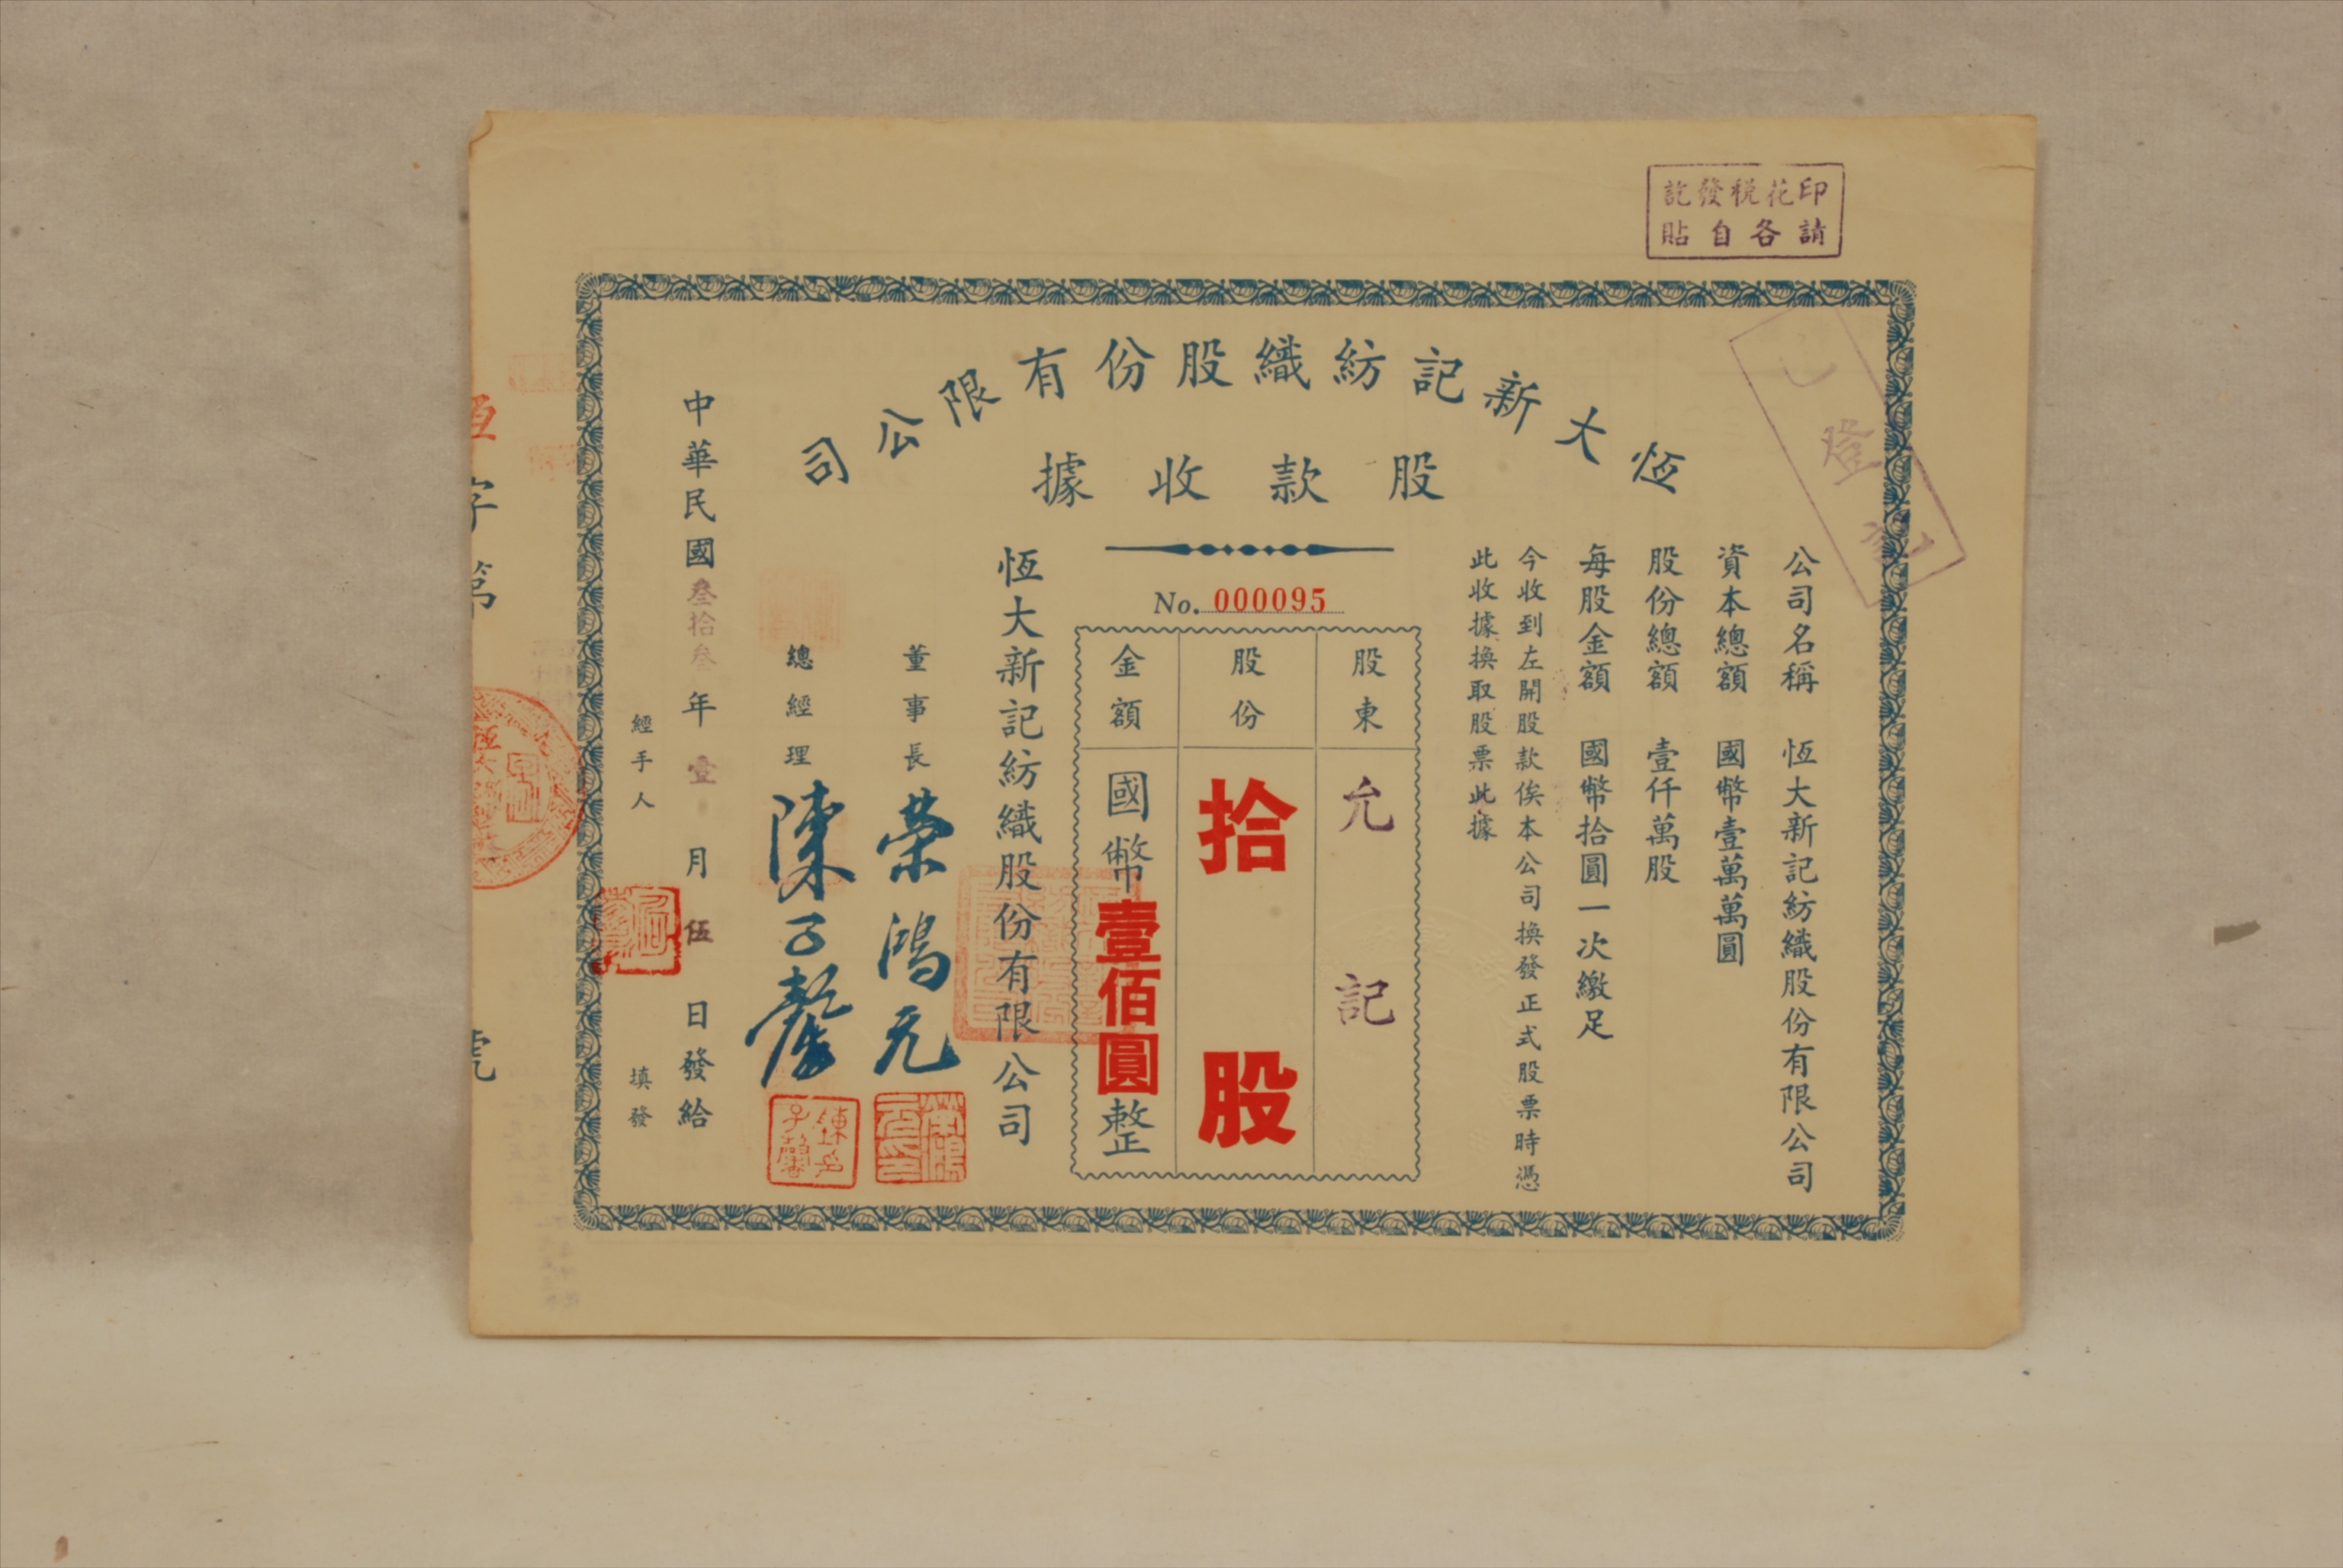 印花稅發訖
請各自貼
登
恆大新記紡織股份有限公司
股款收據
公司名稱 恆大新記紡織股份有限公司
資本總額 國幣壹萬萬圓
股份總額 壹仟萬股
每股金額 國幣拾圓一次繳足
今收到左開股款俟本公司換發正式股票時憑
此收據換取股票此據
No. 000095
股東 允記
股份 拾股
金額 國幣壹佰圓整
恆大新記紡織股份有限公司
董事長 榮鴻元
總經理 陳子馨
陳子馨印
中華民國叁拾叁年壹月伍日發給
經手人 填發
恆字第 號